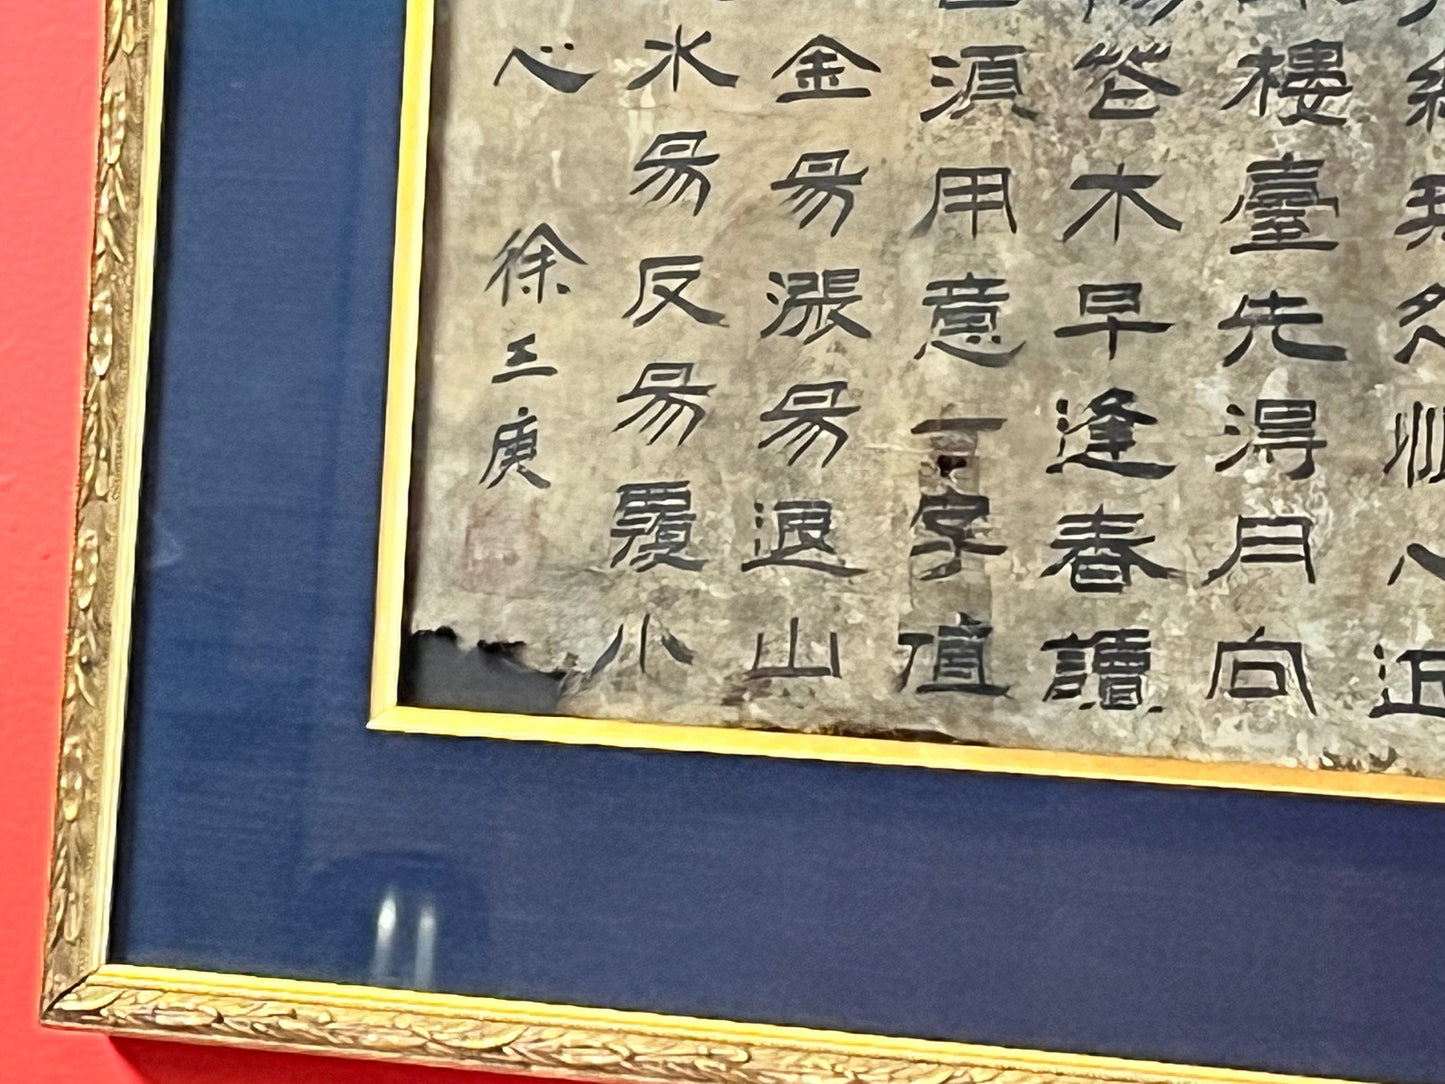 終無怨恨心近
樓臺先得月向
陽花木早逢春讀
須用意一字值
金易漲易退山
水易反易覆小
心 徐三庚